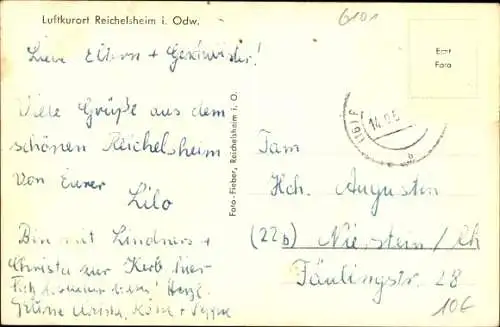 Luftkurort Reichelsheim i. Odw.
6101
Liebe Eltern + Geschwister!
Viele Grüße aus dem
schönen Reichelsheim
von Eurer
Lilo
Bin mit Lindners +
Christa zur Kerb hier
Herzl.
Grüße
Foto-Fieber, Reichelsheim i. O.
Echt
Foto
(16)
14.9.5
b
Fam
Hch. Augustin
(22b) Nierstein/Rh
Fäulingstr. 28
106